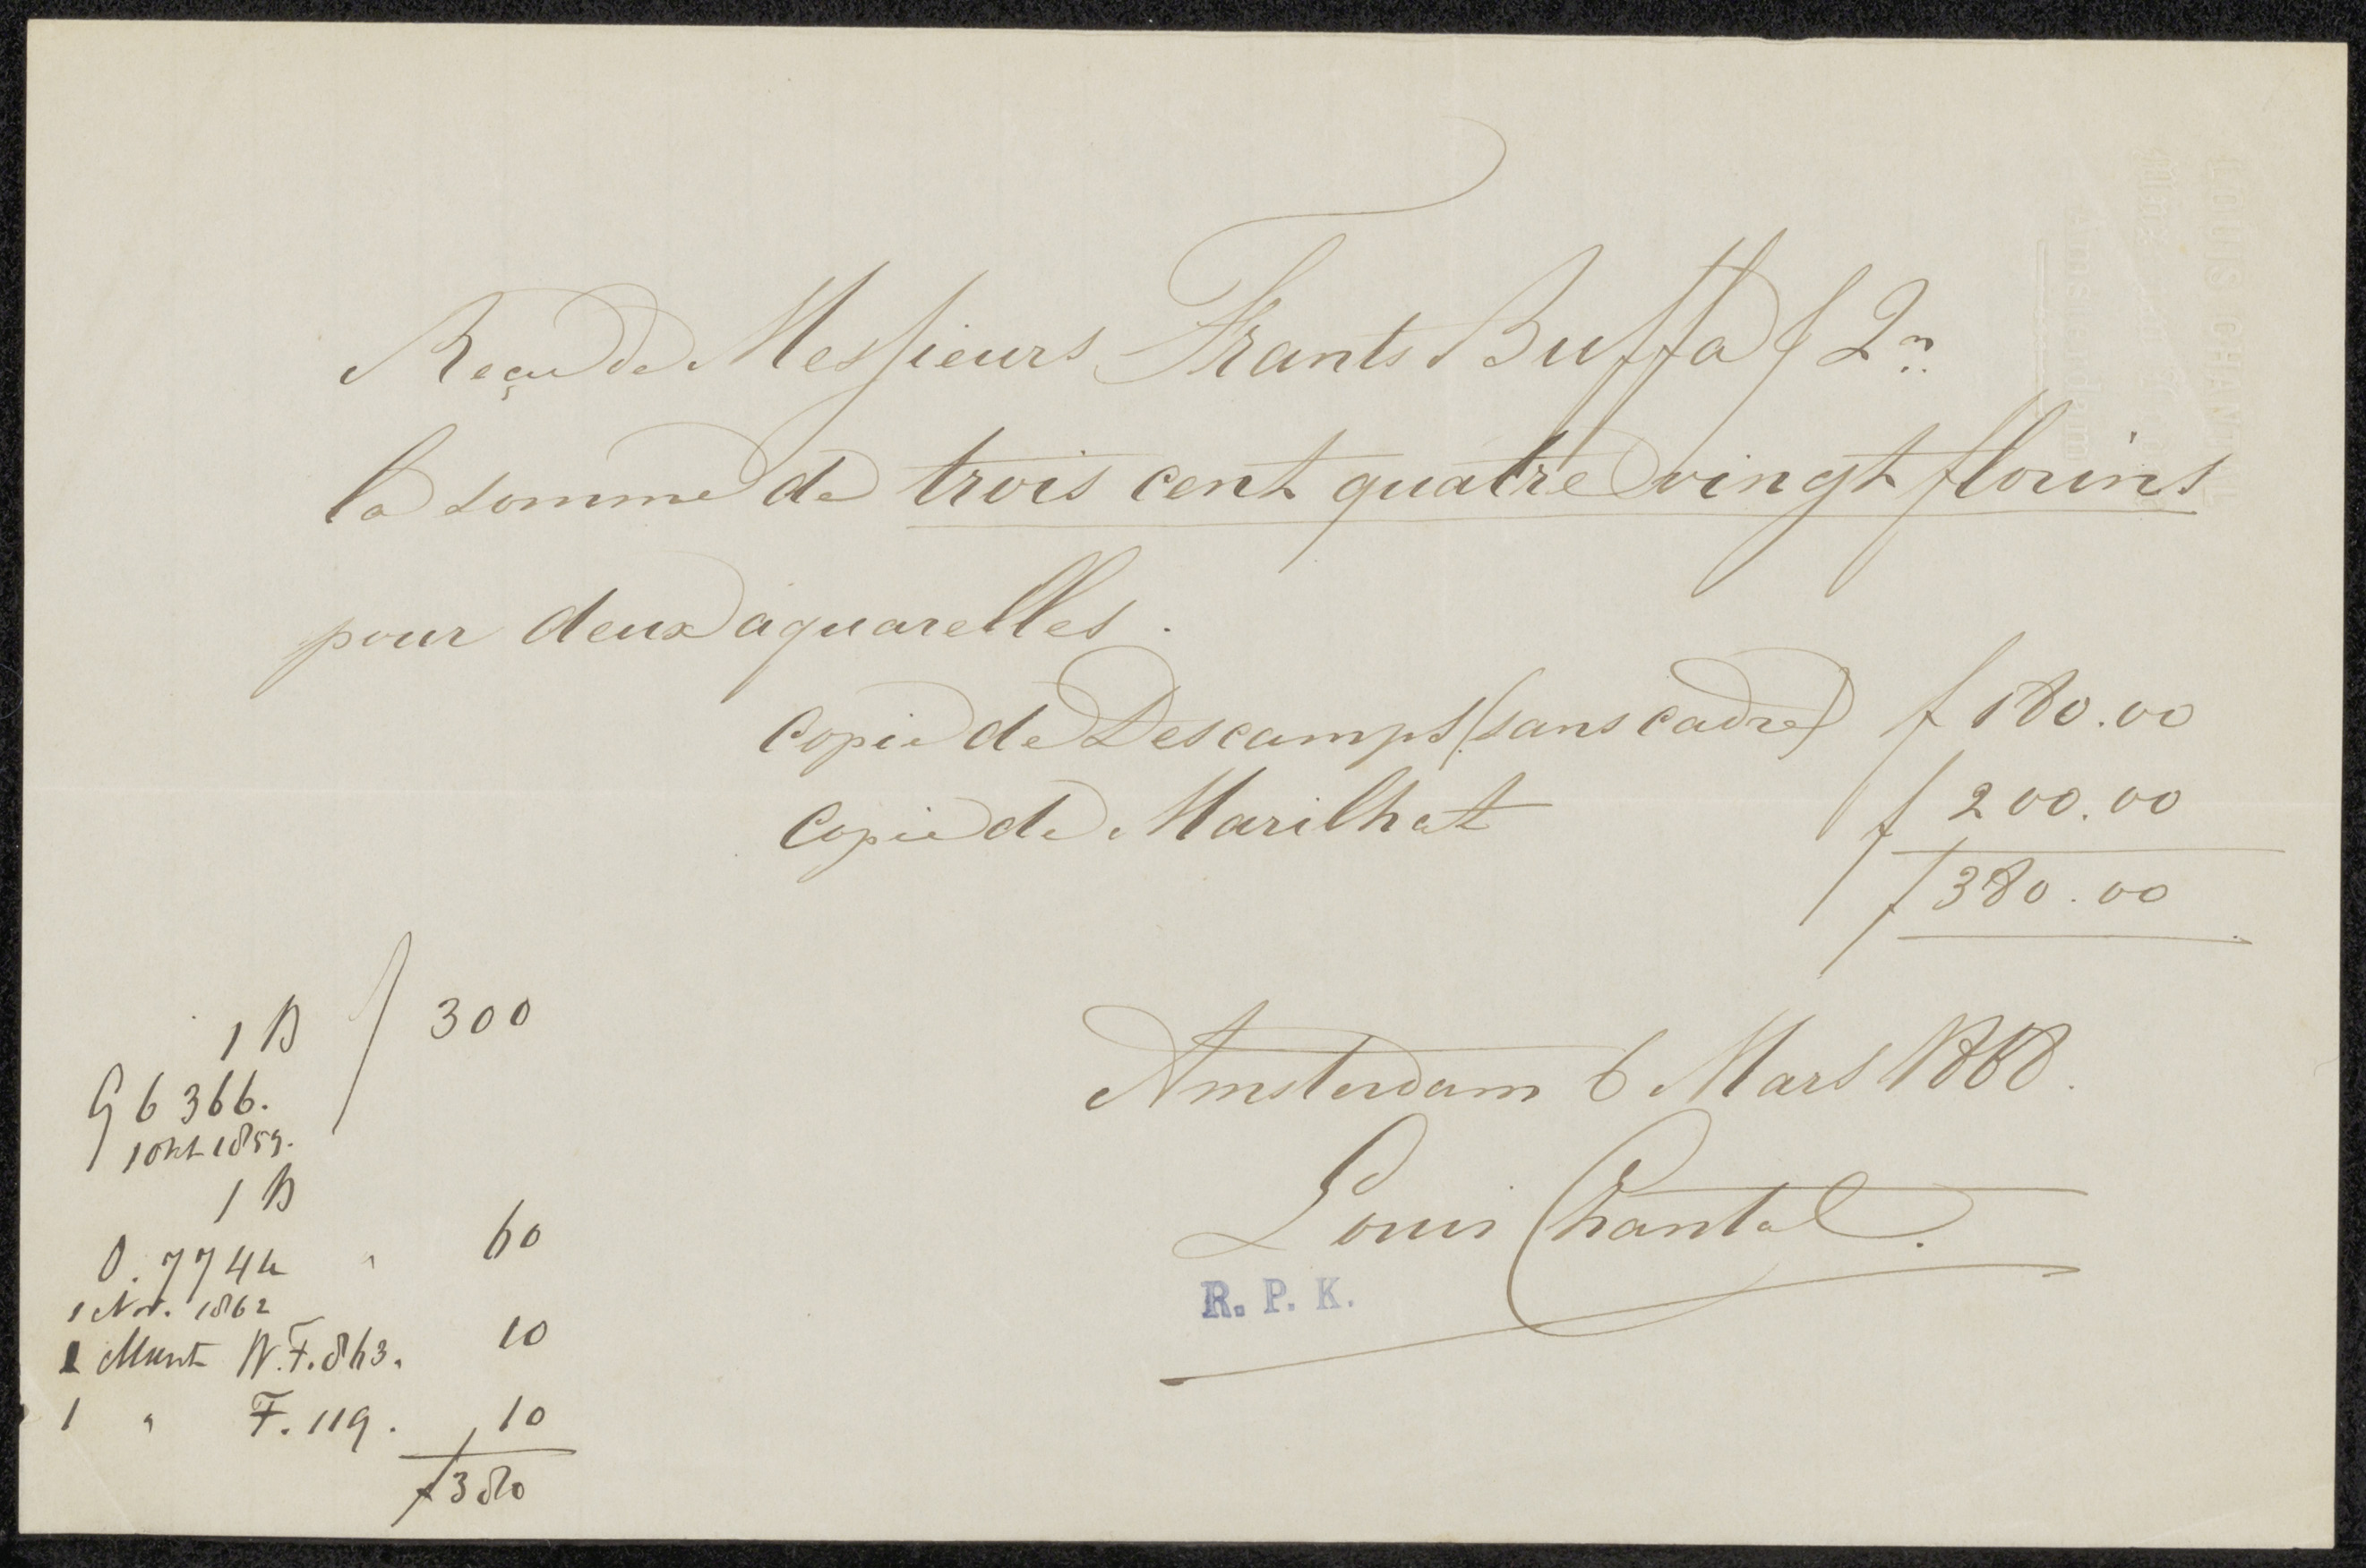 Reçu de Messieurs Frants Buffa & Zn
la somme de trois cent quatre vingt florins
pour deux aquarelles.
Copie de Descamps (sans cadre) f 180.00
Copie de Marilhat f 200.00
f 380.00
Amsterdam 6 Mars 1868.
Louis Chantal.
R. P. K.
1 B f 300
G 6366.
1 Okt 1859.
1 B
O. 7744 " 60
1 Nov. 1862
1 Munt N.F. 863. 10
1 " F. 119. 10
f 380
LOUIS CHANTAL
Amsterdam